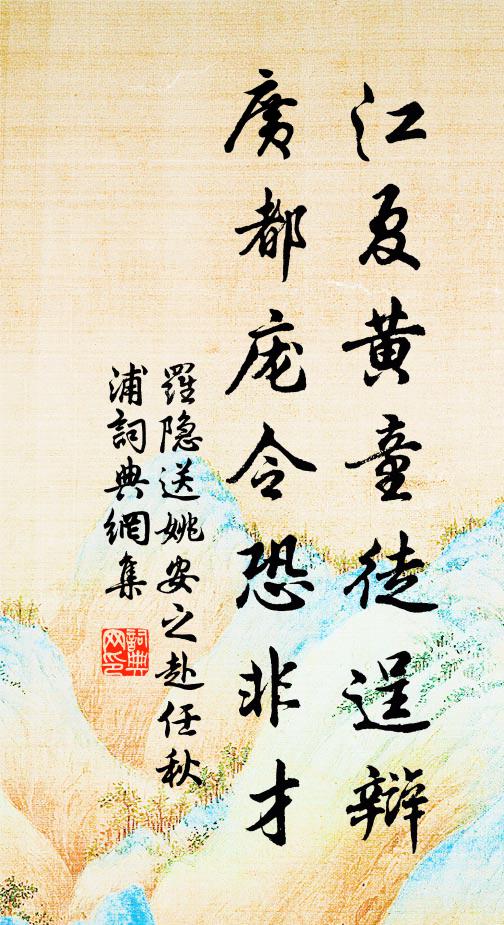 江夏黄童徒逞辯
廣都庞令恐非才
羅隐送姚安之赴任秋
浦詞典網集
詞典
网印